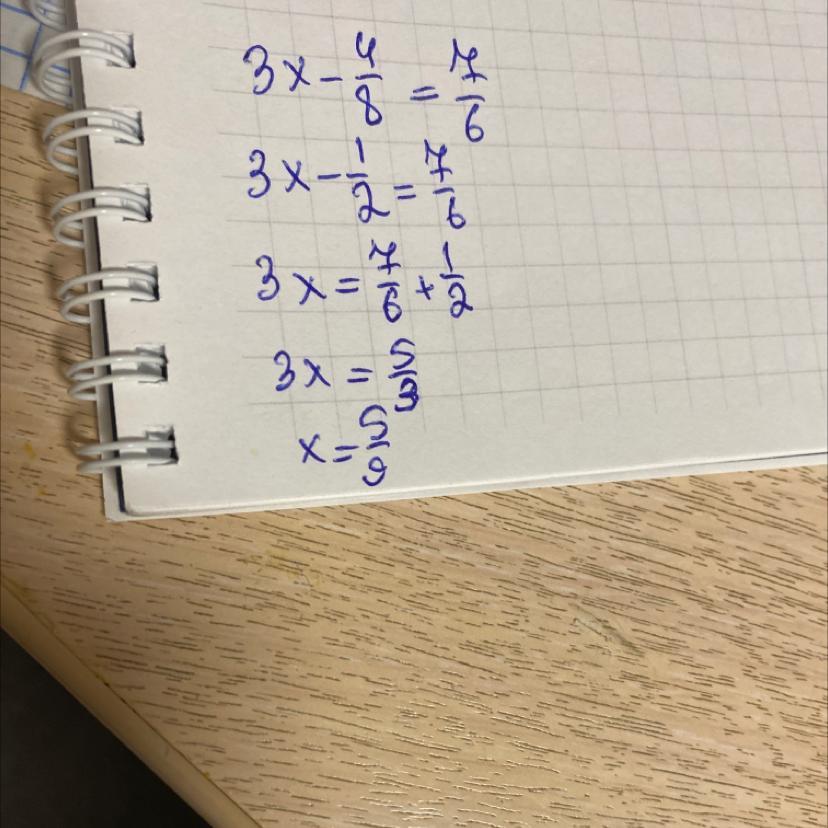 3x - 4/8 = 7/6
3x - 1/2 = 7/6
3x = 7/6 + 1/2
3x = 5/3
x = 5/9